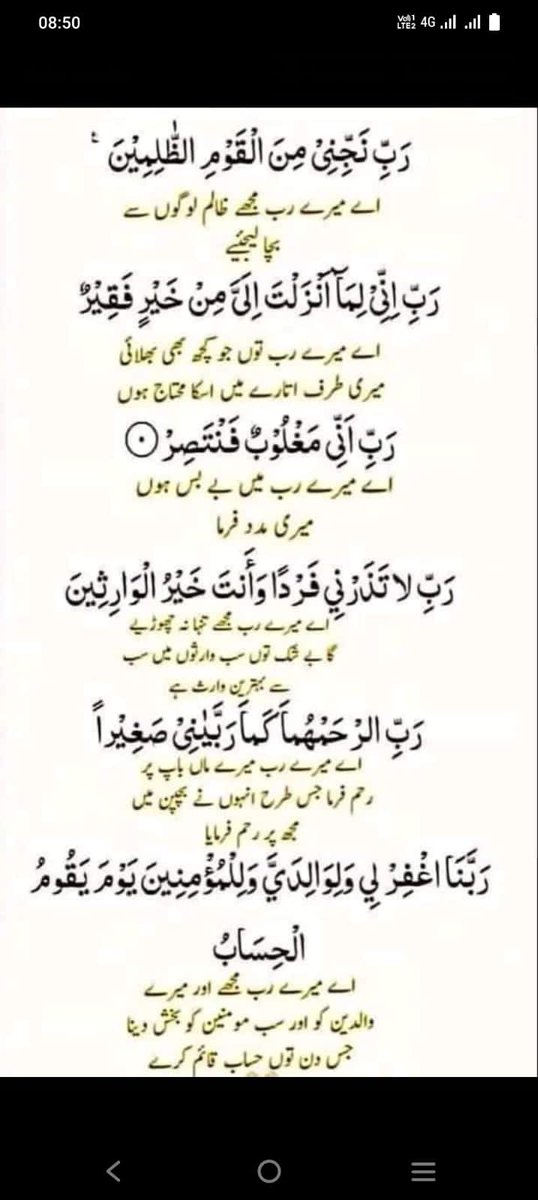 08:50
Vo))1 LTE2 4G
رَبِّ نَجِّنِیْ مِنَ الْقَوْمِ الظّٰلِمِیْنَ
اے میرے رب مجھے ظالم لوگوں سے
بچا لیجئیے
رَبِّ اِنِّیْ لِمَاۤ اَنْزَلْتَ اِلَیَّ مِنْ خَیْرٍ فَقِیْرٌ
اے میرے رب توں جو کچھ بھی بھلائی
میری طرف اتارے میں اسکا محتاج ہوں
رَبِّ اَنِّیْ مَغْلُوْبٌ فَنْتَصِرْ ۝۰
اے میرے رب میں بے بس ہوں
میری مدد فرما
رَبِّ لا تَذَرْنِي فَرْدًا وَأَنتَ خَيْرُ الْوَارِثِينَ
اے میرے رب مجھے تنہا نہ چھوڑیے
گا بے شک توں سب وارثوں میں سب
سے بہترین وارث ہے
رَبِّ الرْحَمْهُمَا كَمَا رَبَّيٰنِیْ صَغِيْراً
اے میرے رب میرے ماں باپ پر
رحم فرما جس طرح انہوں نے بچپن میں
مجھ پر رحم فرمایا
رَبَّنَا اغْفِرْ لِي وَلِوَالِدَيَّ وَلِلْمُؤْمِنِينَ يَوْمَ يَقُومُ
الْحِسَابُ
اے میرے رب مجھے اور میرے
والدین کو اور سب مومنین کو بخش دینا
جس دن توں حساب قائم کرے